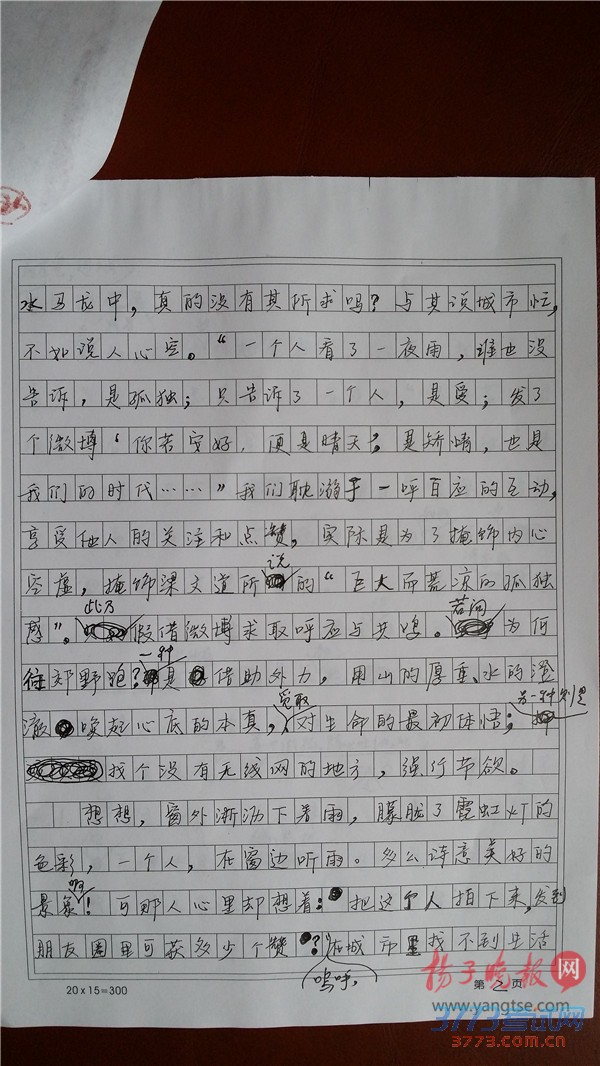 水马龙中，真的没有其所求吗？与其说城市忙，
不如说人心空。“一个人看了一夜雨，谁也没
告诉，是孤独；只告诉了一个人，是爱；发了
个微博‘你若安好，便是晴天’，是矫情，也是
我们的时代……”我们耽溺于一呼百应的互动，
享受他人的关注和点赞，实际是为了掩饰内心
空虚，掩饰梁文道所说的“巨大而荒凉的孤独
感”。以及假借微博求取呼应与共鸣。若问为何
往郊野跑？一种是借助外力，用山的厚重、水的澄
澈唤起心底的本真，觅取对生命的最初体悟；另一种则是
找个没有无线网的地方，强行节欲。
想想，窗外淅沥下着雨，朦胧了霓虹灯的
色彩，一个人，在窗边听雨。多么诗意美好的
景象啊！可那人心里却想着：把这个人拍下来，发到
朋友圈里可获多少个赞？呜呼，在城市里找不到生活
20×15=300
第2页
扬子晚报网
www.yangtse.com
3773考试网
3773.com.cn